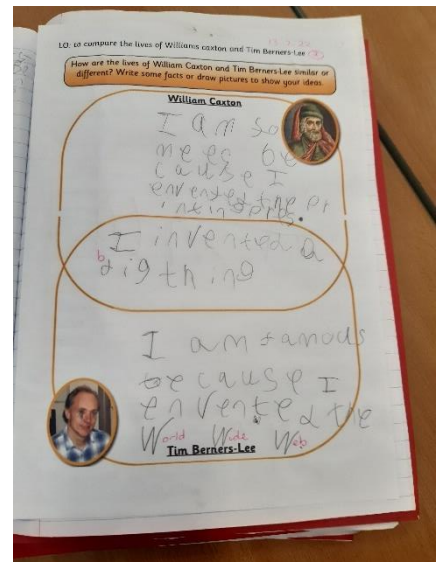 LO: to compare the lives of Williams caxton and Tim Berners-Lee
How are the lives of William Caxton and Tim Berners-Lee similar or
different? Write some facts or draw pictures to show your ideas.
William Caxton
I am so
be
cause I
envented the pr
I invented a
big thing
I am famous
because I
envented the
World Wide Web
Tim Berners-Lee